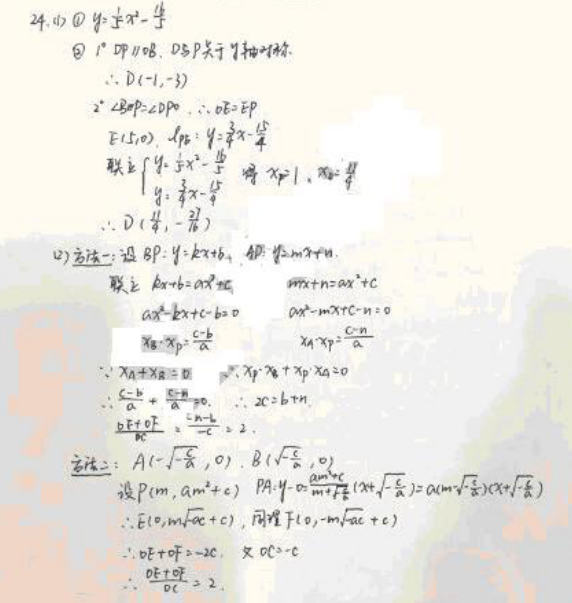 24.(1) ① y=1/5x²-16/5
② 1° DP∥OB. D与P关于y轴对称.
∴D(-1,-3)
2° ∠BOP=∠DPO. ∴OE=EP
E(5,0). l_PE: y=3/4x-15/4
联立 { y=1/5x²-16/5
y=3/4x-15/4 得 x_P=1、x_D=11/4
∴D(11/4, -27/16)
(2) 方法一: 设BP: y=kx+b, AP: y=mx+n.
联立 kx+b=ax²+c mx+n=ax²+c
ax²-kx+c-b=0 ax²-mx+c-n=0
x_B·x_P=(c-b)/a x_A·x_P=(c-n)/a
∵x_A+x_B=0 ∴x_P·x_B+x_P·x_A=0
∴(c-b)/a+(c-n)/a=0. ∴2c=b+n.
(OE+OF)/OC=(-n-b)/-c=2.
方法二: A(-√(-c/a),0). B(√(-c/a),0)
设P(m,am²+c) PA:y-0=(am²+c)/(m+√(-c/a))(x+√(-c/a))=a(m-√(-c/a))(x+√(-c/a))
∴E(0,m√-ac+c), 同理F(0,-m√-ac+c)
∴OE+OF=-2c. 又OC=-c
∴(OE+OF)/OC=2.